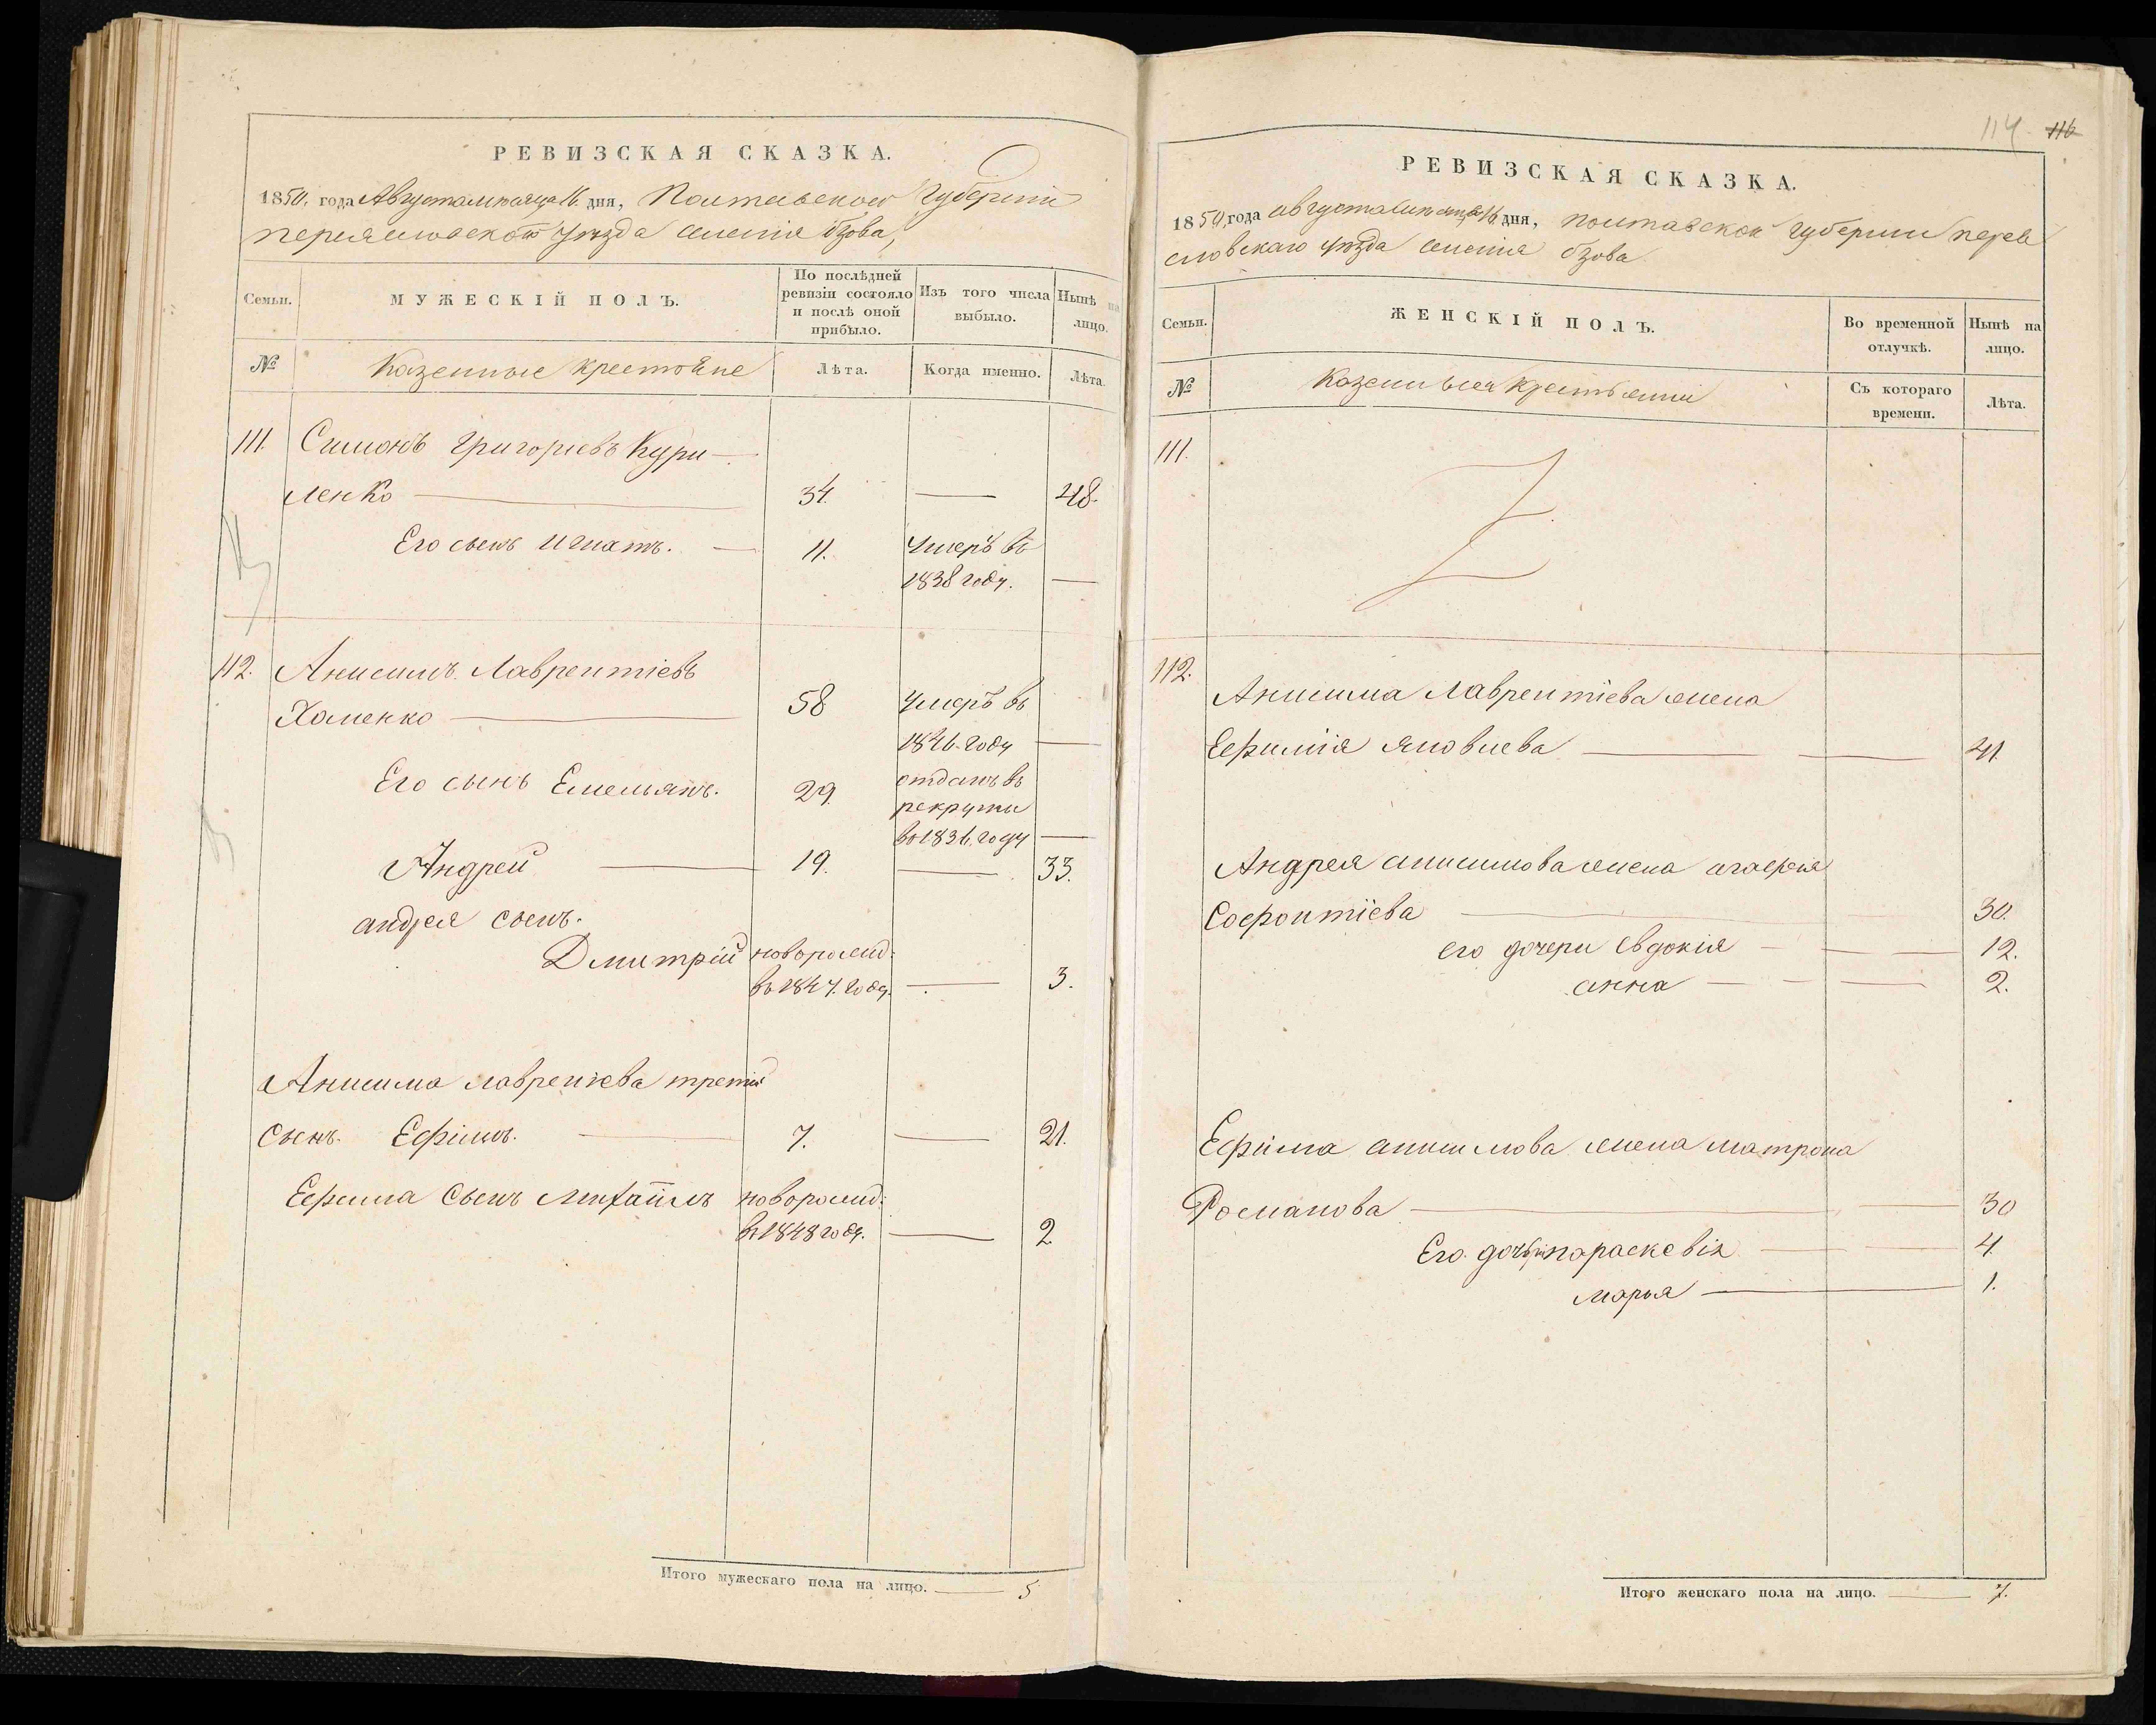 РЕВИЗСКАЯ СКАЗКА.
1850. года Августа месяца 16. дня, Полтавской Губернiи
Переяславскаго Уезда селенiя бзова,
Семьи.
МУЖЕСКІЙ ПОЛЪ.
По послѣдней ревизіи состояло и послѣ оной прибыло.
Изъ того числа выбыло.
Нынѣ на лицо.
№
Казенные крестьяне
Лѣта.
Когда именно.
Лѣта.
111. Симонъ Григорiевъ Кури-
ленко 34. 48.
Его сынъ Игнатъ. 11. Умеръ въ
1838 году.
112. Анисимъ Лаврентiевъ
Хоменко 58 Умеръ въ
1846 году
Его сынъ Емельянъ. 29. отданъ въ
рекруты
въ 1836. году
Андрей 19. 33.
андрея сынъ.
Дмитрiй новорожд:
въ 1847. году. 3.
Анисима лаврентiева третiй
сынъ. Ефiмъ. 7. 21.
Ефима сынъ михаiлъ новорожд:
въ 1848 году. 2
Итого мужескаго пола на лицо. 5
114. 116
РЕВИЗСКАЯ СКАЗКА.
1850, года августа месяца 16 дня, полтавской губернии перея
словскаго уезда селенiя бзова
Семьи.
ЖЕНСКІЙ ПОЛЪ.
Во временной отлучкѣ.
Нынѣ на лицо.
№
Съ котораго времени.
Лѣта.
111.
112.
Анисима Лаврентiева жена
Ефимiя яковлева 41.
Андрея анисимова жена агафiя
Софонтiева 30.
его дочери Евдокiя 12.
анна 2.
Ефiма анисимова жена матрона
Романова 30
Его дочери параскевiя 4.
марья 1.
Итого женскаго пола на лицо. 7.